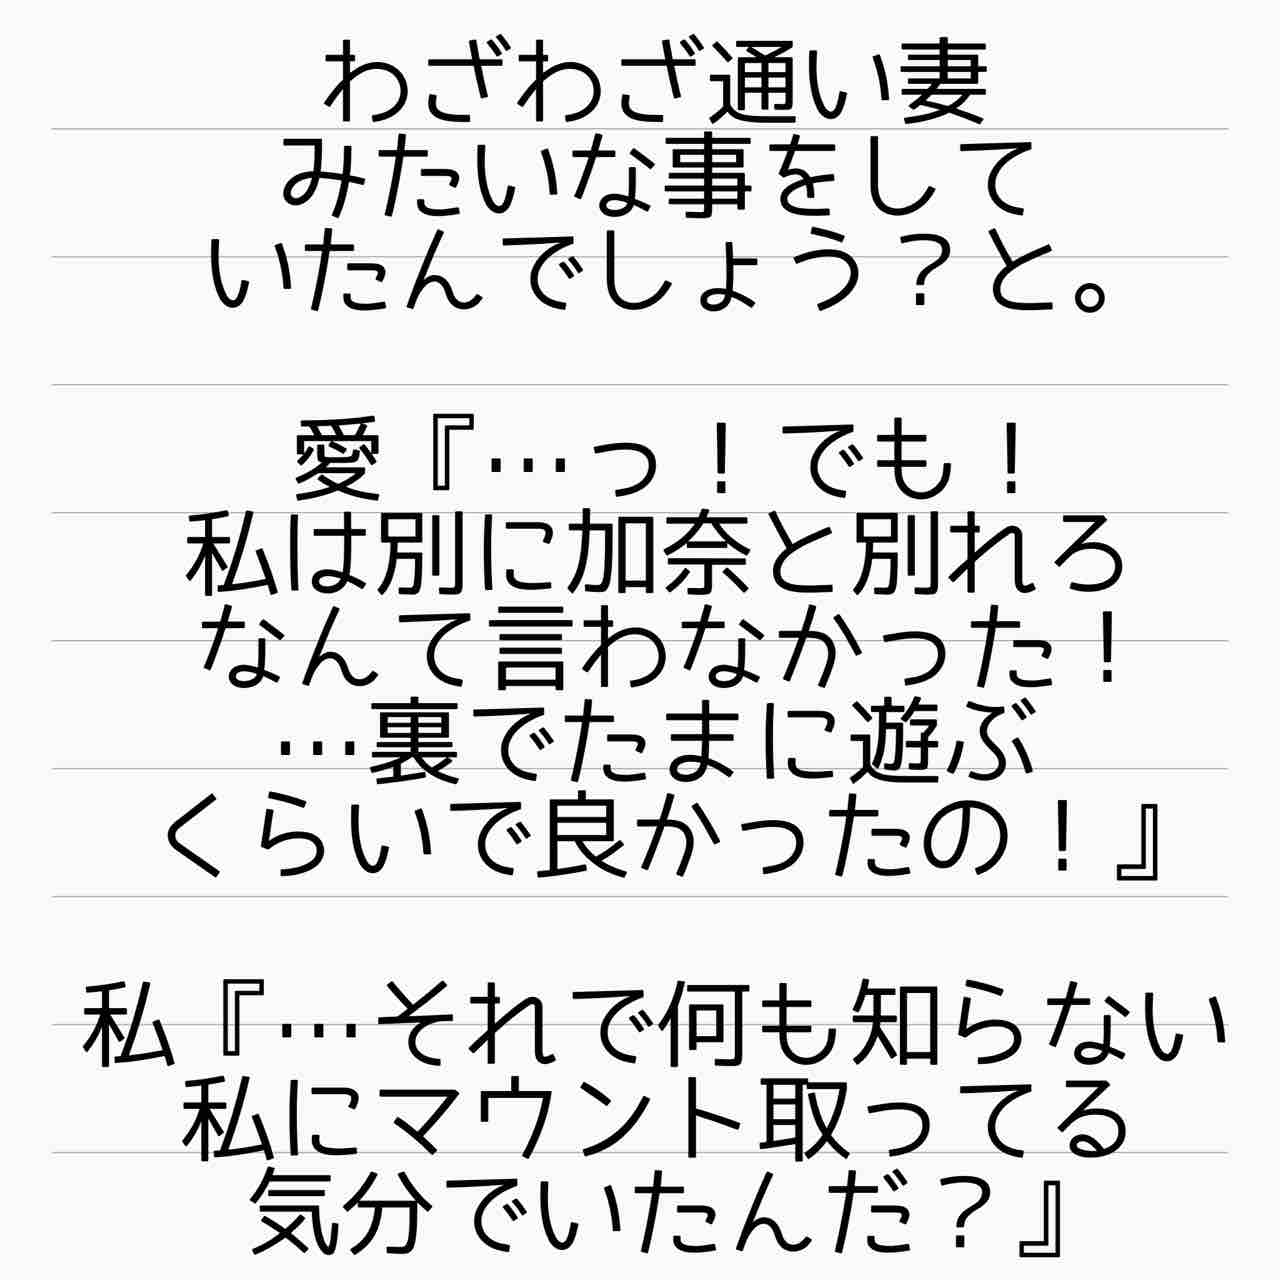 わざわざ通い妻
みたいな事をして
いたんでしょう？と。
愛『…っ！でも！
私は別に加奈と別れろ
なんて言わなかった！
…裏でたまに遊ぶ
くらいで良かったの！』
私『…それで何も知らない
私にマウント取ってる
気分でいたんだ？』